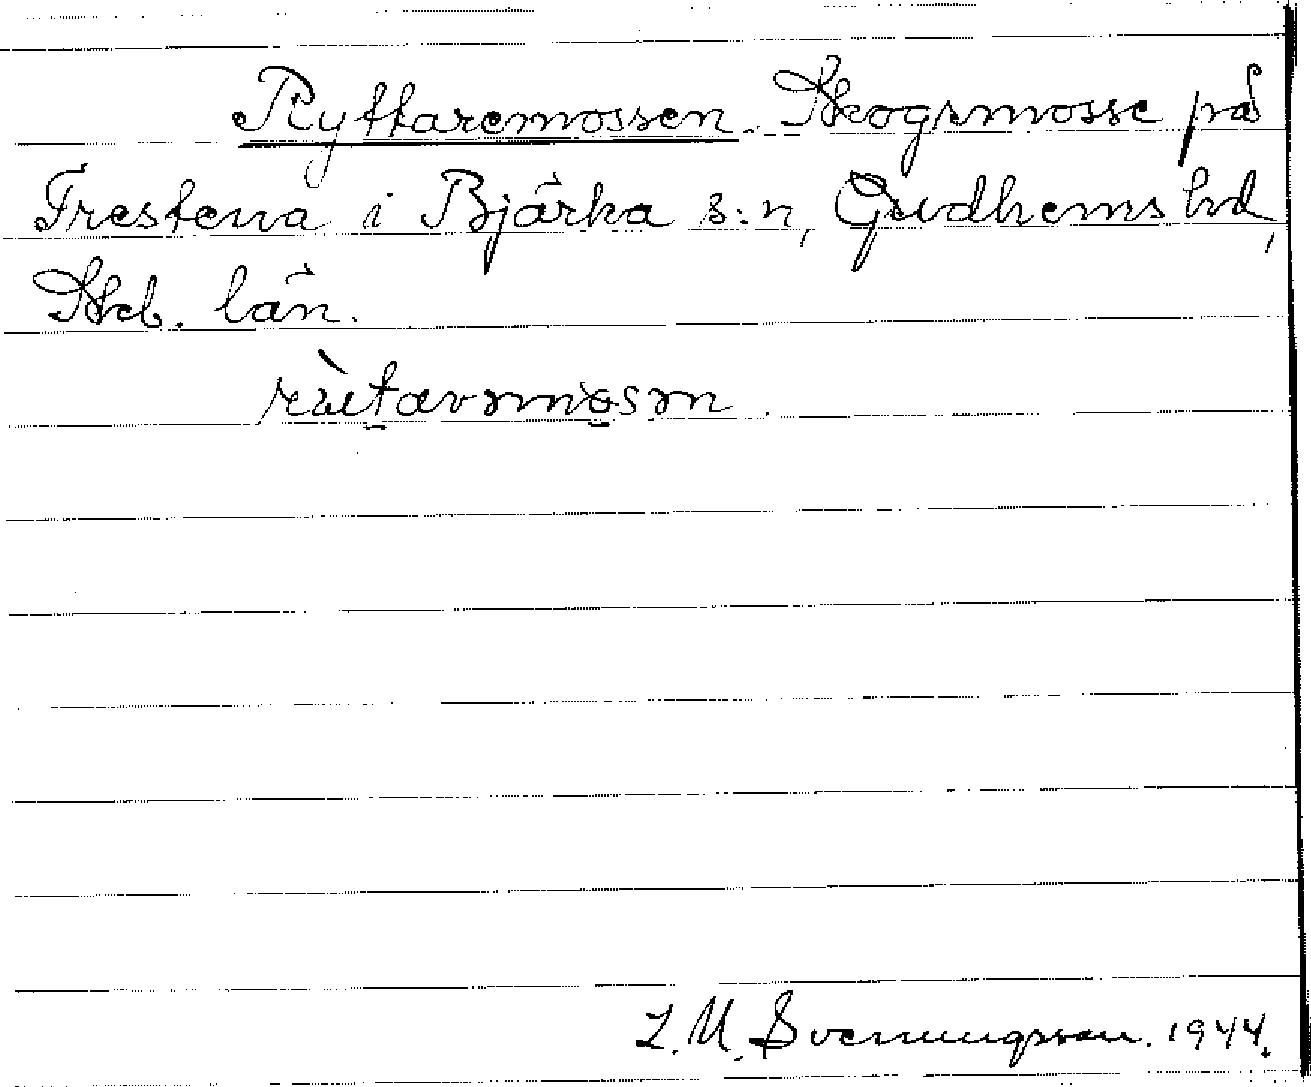 Ryttaremossen. Skogsmosse på
Trestena i Bjärka s:n, Gudhems hd,
Skb. län.
L. M. Svenungsson. 1944.